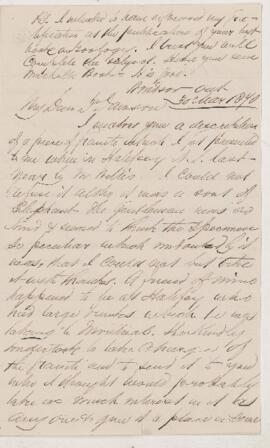 P.S. I intended to have expressed my
as the publication of your last
book on Geology. I trust you will
complete the
Book. It is good.
Windsor Oct
My Dear Dr Dawson 30 Nov 1890
I enclose you a description
of a piece of granite which I got presented
to me when in Halifax N.S. last
year by Mr I could not
it was a sort of
Elephant. The gentleman was so
kind & seemed to think the specimen
so peculiar which indeed
was, that I could not but take
it with thanks. A friend of mine
happened to be at Halifax who
had large boxes which he was
taking to Montreal. He kindly
undertook to take charge of
the granite and to send it to you
who I thought would probably
take as much interest in it as
any one & give it a place in some